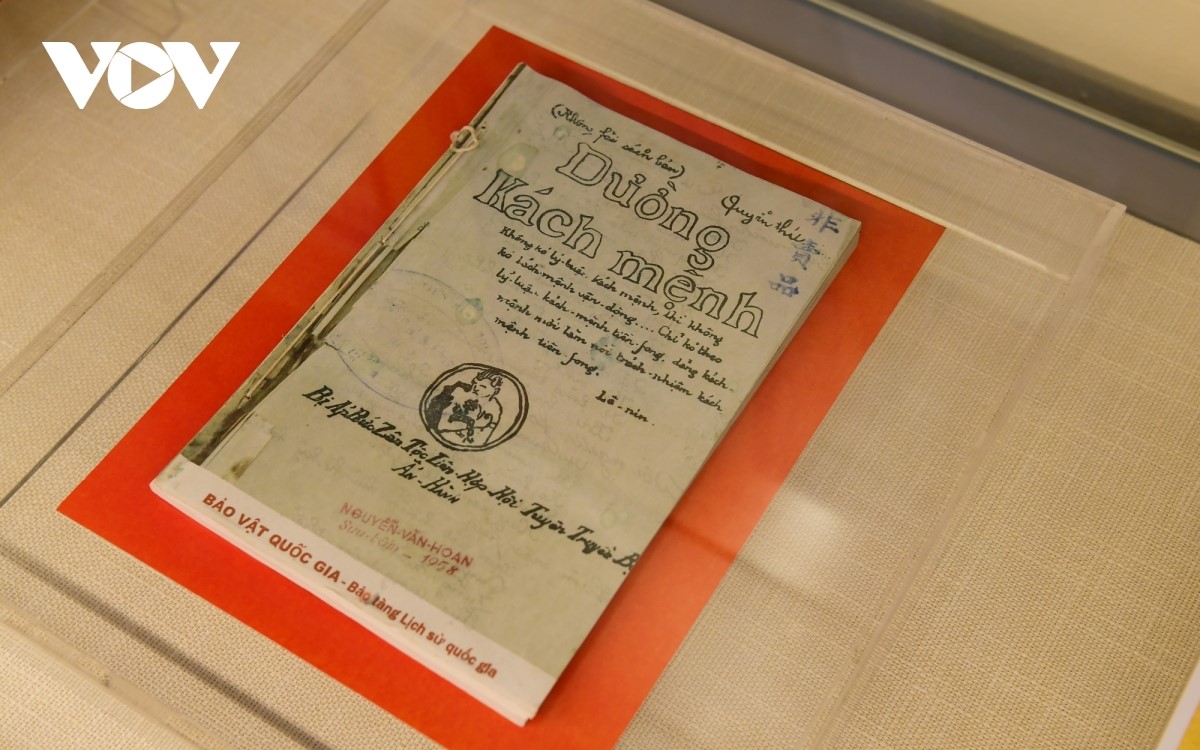 VOV
(Không fải sách bán)
Đường
Quyển thứ
Kách mệnh
非
賣
品
Không có lý luận kách mệnh, thì không
có kách mệnh vận-động.... Chỉ có theo
lý-luận kách-mệnh tiền-fong, đảng kách-
mệnh mới làm nổi trách-nhiệm kách
mệnh tiền-fong.
Lê-nin.
Bị Áp Bức Zân Tộc Liên Hợp Hội Tuyên Truyền Bộ
Ấn-Hành
NGUYỄN-VĂN-HOAN
Sưu-tầm-1958
BẢO VẬT QUỐC GIA - Bảo tàng Lịch sử quốc gia